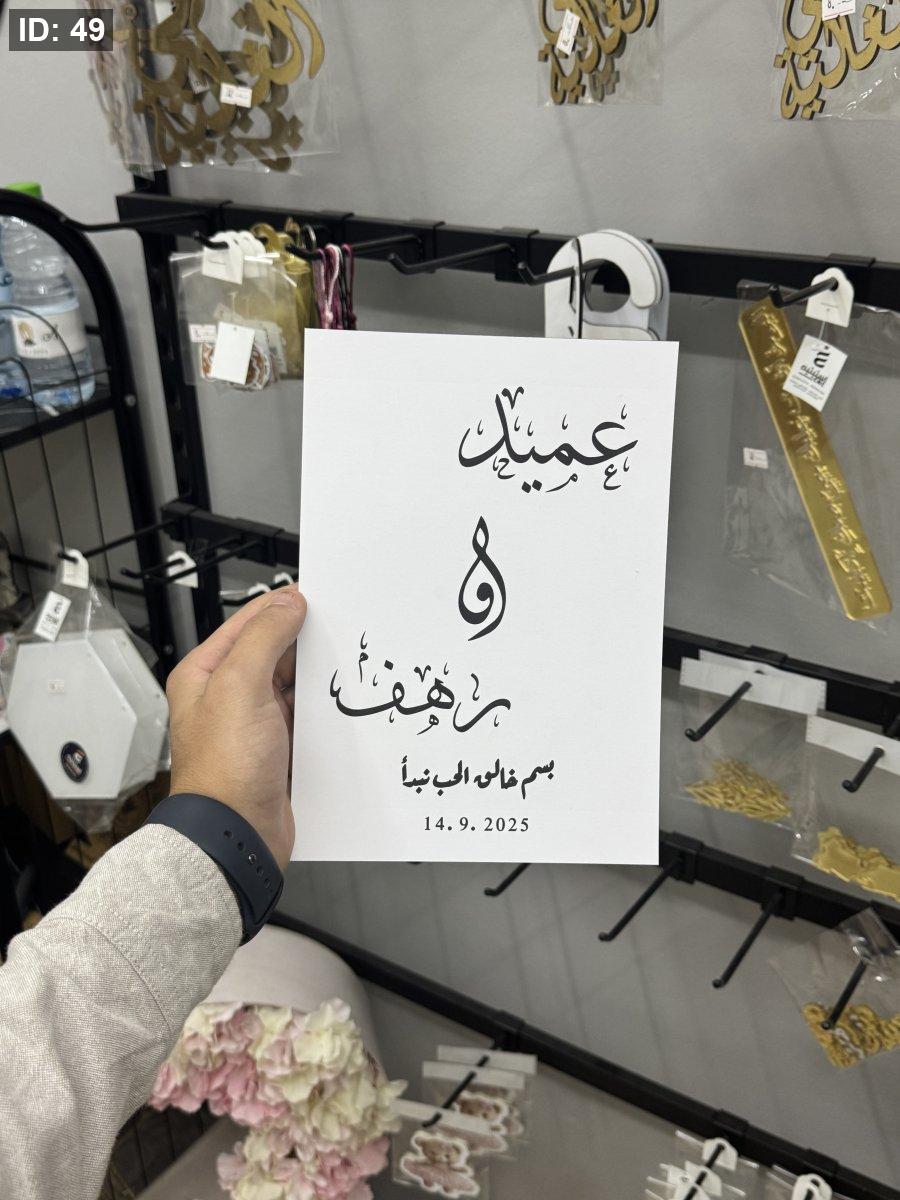 ID: 49
عميد
و
رهف
بسم خالق الحب نبدأ
14. 9. 2025